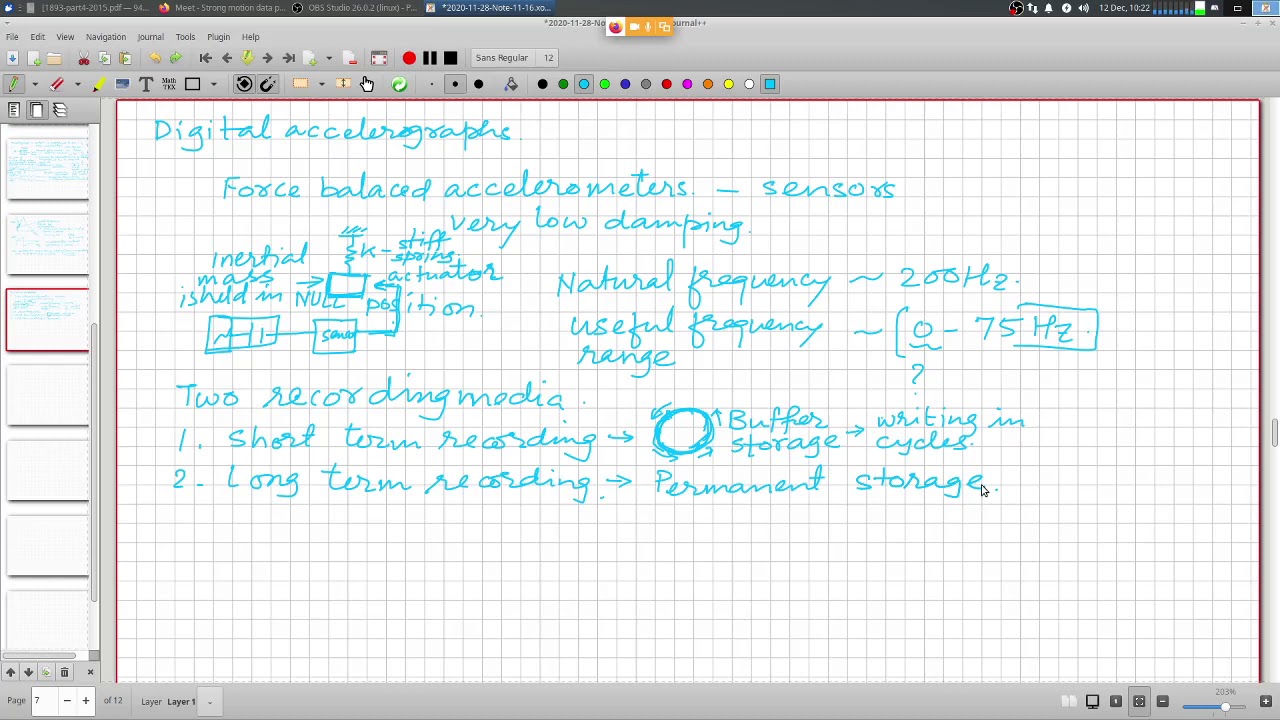 [1893-part4-2015.pdf] — 94...
Meet - Strong motion data p...
OBS Studio 26.0.2 (linux) - P...
*2020-11-28-Note-11-16.xo...
12 Dec, 10:22
File Edit View Navigation Journal Tools Plugin Help
Sans Regular 12
Digital accelerographs.
Force balaced accelerometers. — sensors
very low damping.
K - stiff spring.
Inertial mass is held in NULL position.
actuator
servo
Natural frequency ~ 200Hz.
useful frequency range ~ [0 - 75 Hz.
?
Two recording media.
1. Short term recording → Buffer storage → writing in cycles.
2. Long term recording. → Permanent storage.
Page 7 of 12 Layer Layer 1
203%